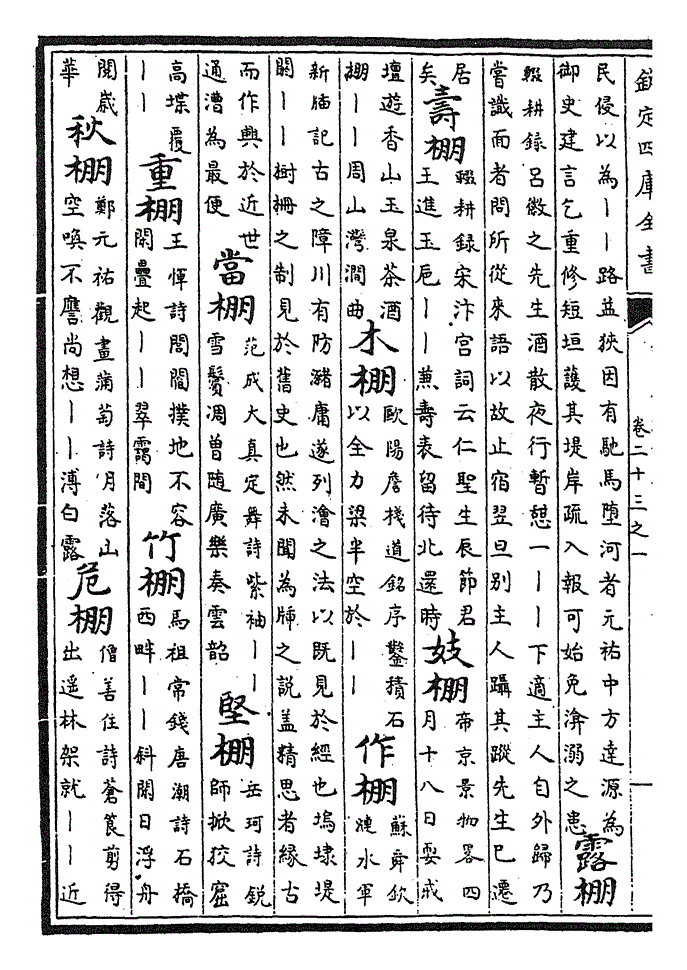 欽定四庫全書
卷二十三之一
民侵以為丨丨路益狹因有馳馬墮河者元祐中方達源為
御史建言乞重修短垣護其堤岸疏入報可始免渰溺之患
露棚
輟耕録呂徽之先生酒散夜行暫憩一丨丨下適主人自外歸乃
嘗識面者問所從來語以故止宿翌旦别主人躡其蹤先生已遷
居
矣
壽棚
輟耕録宋汴宫詞云仁聖生辰節君
王進玉巵丨丨兼壽表留待北還時
妓棚
帝京景物畧四
月十八日耍戒
壇遊香山玉泉茶酒
棚丨丨周山灣澗曲
木棚
歐陽詹棧道銘序鑿積石
以全力梁半空於丨丨
作棚
蘇舜欽
漣水軍
新牐記古之障川有防瀦庸遂列澮之法以既見於經也塢埭堤
閘丨丨樹柵之制見於舊史也然未聞為牐之說盖精思者縁古
而作興於近世
通漕為最便
當棚
范成大真定舞詩紫袖丨丨
雪鬢凋曽随廣樂奏雲韶
堅棚
岳珂詩鋭
師掀狡窟
高堞覆
丨丨
重棚
王惲詩閭閻撲地不容
閑疊起丨丨翠靄間
竹棚
馬祖常錢唐潮詩石橋
西畔丨丨斜閑日浮舟
閱歳
華
秋棚
鄭元祐觀畫蒲萄詩月落山
空喚不譍尚想丨丨漙白露
危棚
僧善住詩蒼筤剪得
出遥林架就丨丨近